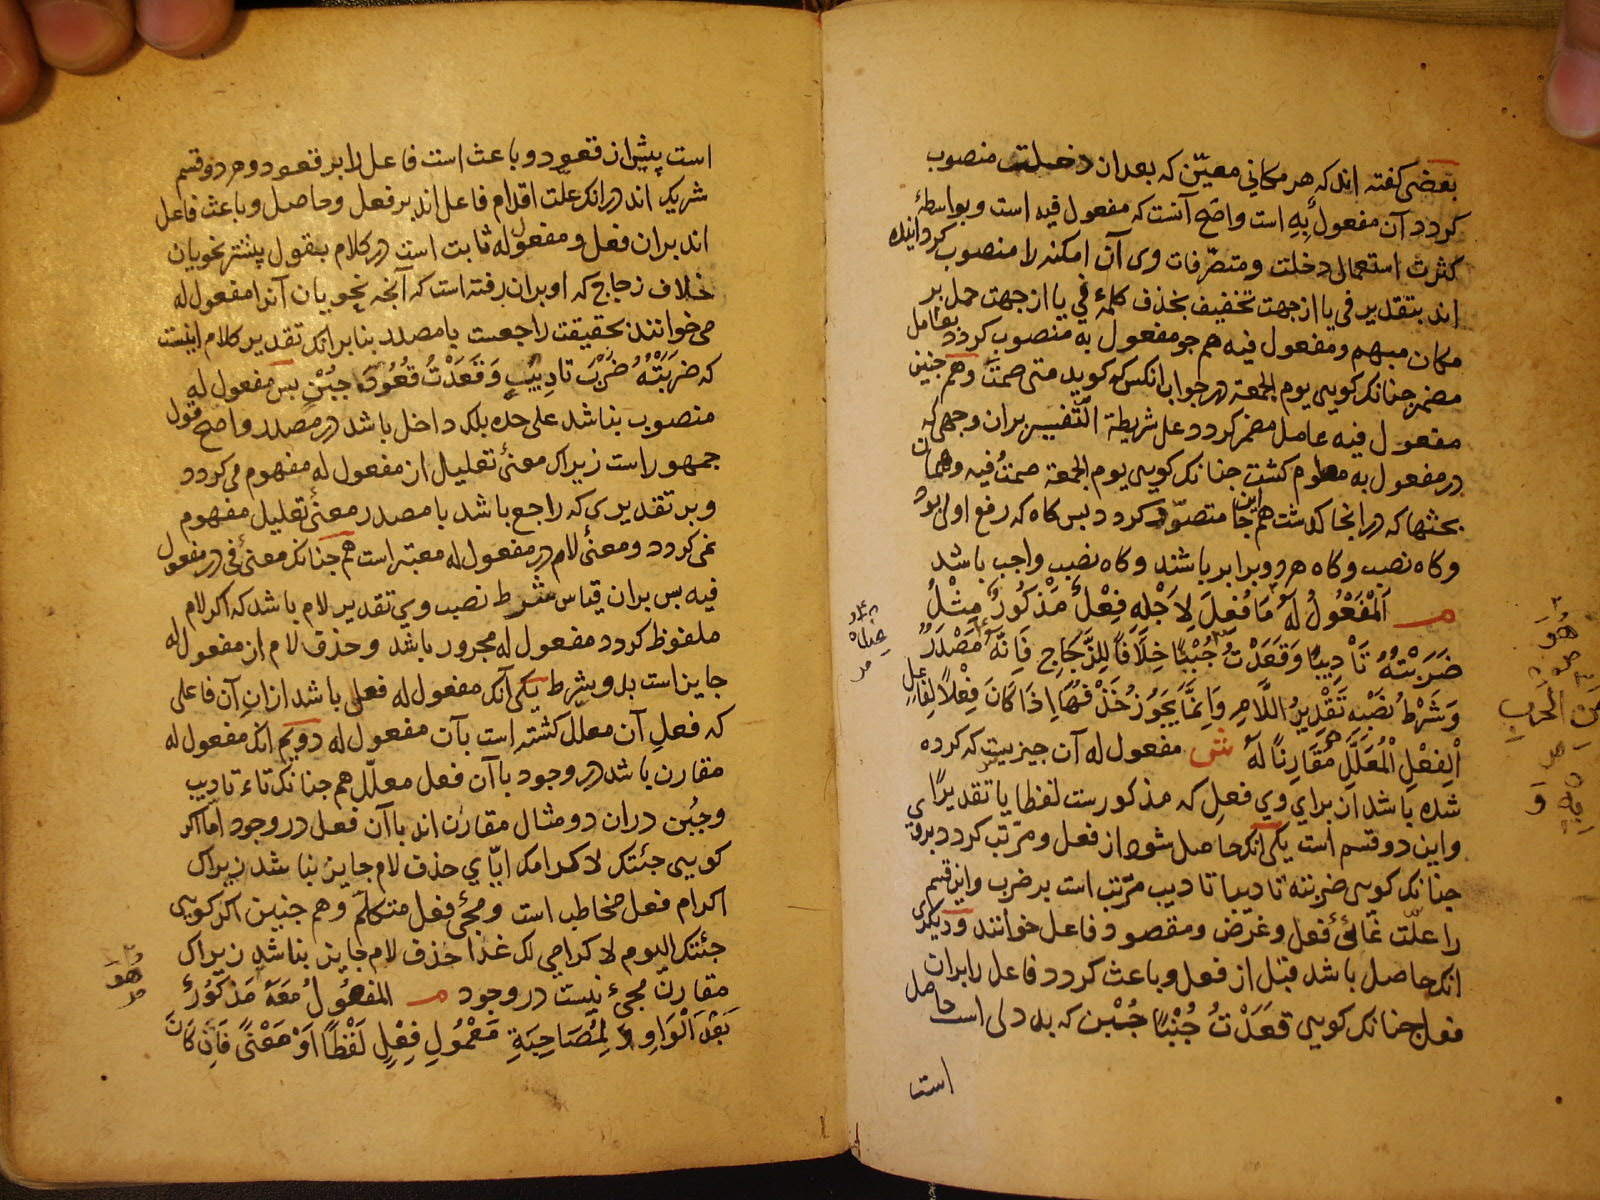 بعضی کفته اند که هر مکانی معیّن که بعد ان دخلت منصوب
کردد آن مفعول بِهِ است واضح آنست که مفعول فیه است وبواسطهٔ
کثرت استعمال دخلت ومتصرّفات وی آن امکنه را منصوب کردانیده
اند بتقدیر فی یا از جهت تخفیف بحذف کلمهٔ فی یا از جهت حمل بر
مکان مبهم ومفعول فیه هم جو مفعول به منصوب کردد بعامل
مضمر جنانک کویی یوم الجمعة در جواب انکس که کوید متی صمتَ وهم جنین
مفعول فیه عامل مضمر کردد علی شریطة التّفسیر بران وجهی که
در مفعول به معلوم کشت جنانک کویی یوم الجمعة صمتُ فیه وهمان
بحثها که در انجا کذشت هم این جا متصوّر کردد بس کاه که رفع اولی بود
وکاه نصب وکاه هر دو برابر باشند وکاه نصب واجب باشد
م اَلْمَفْعُولُ لَهُ مَا فُعِلَ لِاَجْلِهِ فِعْلٌ مَذْکُورٌ مِثْلُ
ضَرَبْتُهُ تَأْدِیبًا وَقَعَدْتُ جُبْنًا خِلَافًا لِلزَّجَاجِ فَاِنَّهُ مَصْدَرٌ
وَشَرْطُ نَصْبِهِ تَقْدِیرُ اللَّامِ وَاِنَّمَا یَجُوزُ حَذْفُهَا اِذَا کَانَ فِعْلًا لِفَاعِلِ
اَلْفِعْلِ الْمُعَلَّلِ مُقَارِنًا لَهُ ش مفعول له آن جیزیست که کرده
شده باشد از برای وی فعلی که مذکورست لفظا یا تقدیرًا
واین دو قسم است یکی انک حاصل شود از فعل ومرتّب کردد بروی
جنانک کویی ضربته تادیبا تادیب مرتّب است بر ضرب واین قسم
را علّت غائی فعل وغرض ومقصود فاعل خوانند ودیکری
انک حاصل باشد قبل از فعل وباعث کردد فاعل را بران
فعل جنانک کویی قَعَدْتُ جُبْنًا جُبْن که بد دلی است حاصل
است
است پیش از قعود وباعث است فاعل را بر قعود وهر دو قسم
شریک اند در انک علّت اقدام فاعل اند بر فعل وحاصل وباعث فاعل
اند بران فعل ومفعول له ثابت است در کلام بقول بیشتر نحویان
خلاف زجاج که او بران رفته است که آنجه نحویان آنرا مفعول له
می خوانند بحقیقت راجعست با مصدر بنا بر انک تقدیر کلام اینست
که ضَرَبْتُهُ ضَرْبَ تادِیبٍ وَقَعَدْتُ قُعُودَ جُبْنٍ بس مفعول له
منصوب بناشد علی حده بلک داخل باشد در مصدر واصح قول
جمهور است زیراک معنیٔ تعلیل از مفعول له مفهوم می کردد
وبر تقدیری که راجع باشد با مصدر معنیٔ تعلیل مفهوم
نمی کردد ومعنیٔ لام در مفعول له معتبر است هم جنانک معنیٔ فی در مفعول
فیه بس بران قیاس شرط نصب وی تقدیر لام باشد که اکر لام
ملفوظ کردد مفعول له مجرور باشد وحذف لام از مفعول له
جایز است بدو شرط یکی آنک مفعول له فعلی باشد از ان آن فاعلی
که فعلِ آن معلّل کشته است بآن مفعول له دویم انک مفعول له
مقارن باشد در وجود با آن فعل معلّل هم جنانک تاء تادیب
وجُبن دران دو مثال مقارن اند با آن فعل در وجود امّا اکر
کویی جئتک لاکرامک ایّای حذف لام جایز بناشد زیراک
اکرام فعل مخاطب است ومجیٔ فعل متکلّم وهم جنین اکر کویی
جئتک الیوم لاکرامی لک غدا حذف لام جایز بناشد زیراک
مقارن مجیٔ نیست در وجود م المفعُولُ مَعَهُ مَذْکُورٌ
بَعْدَ الْوَاوِ لِمُصَاحِبَةِ مَعْمُولِ فِعْلٍ لَفْظًا اَوْ مَعْنًی فَاِنْ کَانَ
هُوَ